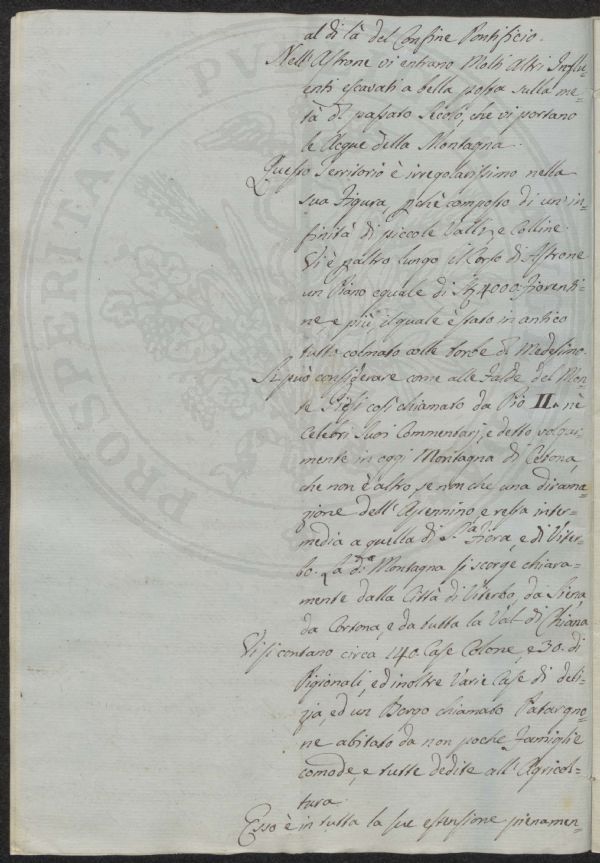 al di là del Confine Pontificio.
Nell'Astrone vi entrano Molti Altri Influ=
enti escavati a bella posta sulla me=
tà di passato Secolo, che vi portano
le Acque della Montagna.
Questo Territorio è irregolarissimo nella
sua Figura, pchè composto di un in=
finità di piccole Valli, e Colline.
Vi è p altro lungo il Corso di Astrone
un Piano eguale di 4000 Fiorenti=
ne e più, il quale è stato in antico
tutto colmato colle torbe di Medesimo.
Si può considerare come alle Falde del Mon=
te così chiamato da Pio II. nè
Celebri Suoi Commentarj, e detto volgar=
mente in oggi Montagna di Cetona,
che non è altro, se non che una dirama=
zione dell'Apennino e resta inter=
media a quella di S.ta Fiora, e di Viter=
bo. La d.a Montagna si scorge chiara=
mente dalla Città di Viterbo, da Siena,
da Cortona, e da tutta la Val di Chiana
Vi si contano circa 140. Case Colone, e 30. di
Pigionali, ed inoltre Varie Case di deli=
zia, ed un Borgo chiamato
ne abitato da non poche Famiglie
comode, e tutte dedite all'Agricol=
tura.
Esso è in tutta la sue estensione pienamen=
PROSPERITATI